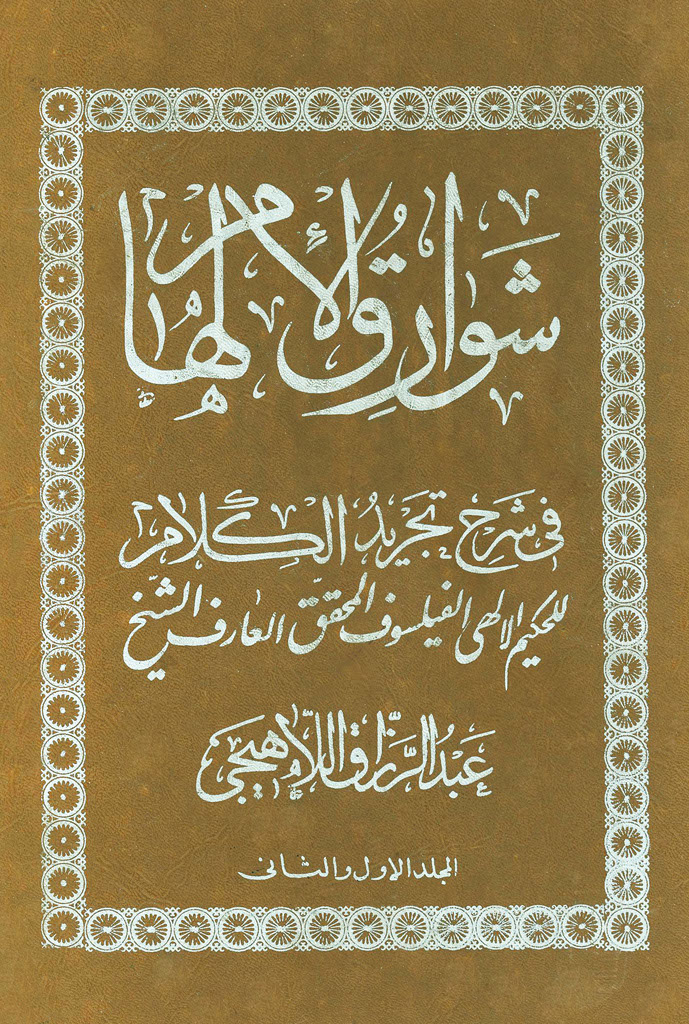 شَوارِقُ الإلهام
فى شَرح تجريدُ الكلام
للحكيم الالهى الفيلسوف المحقّق العارف الشّيخ
عَبدُ الرَّزاق اللّاهيجى
المجلد الاول والثانى